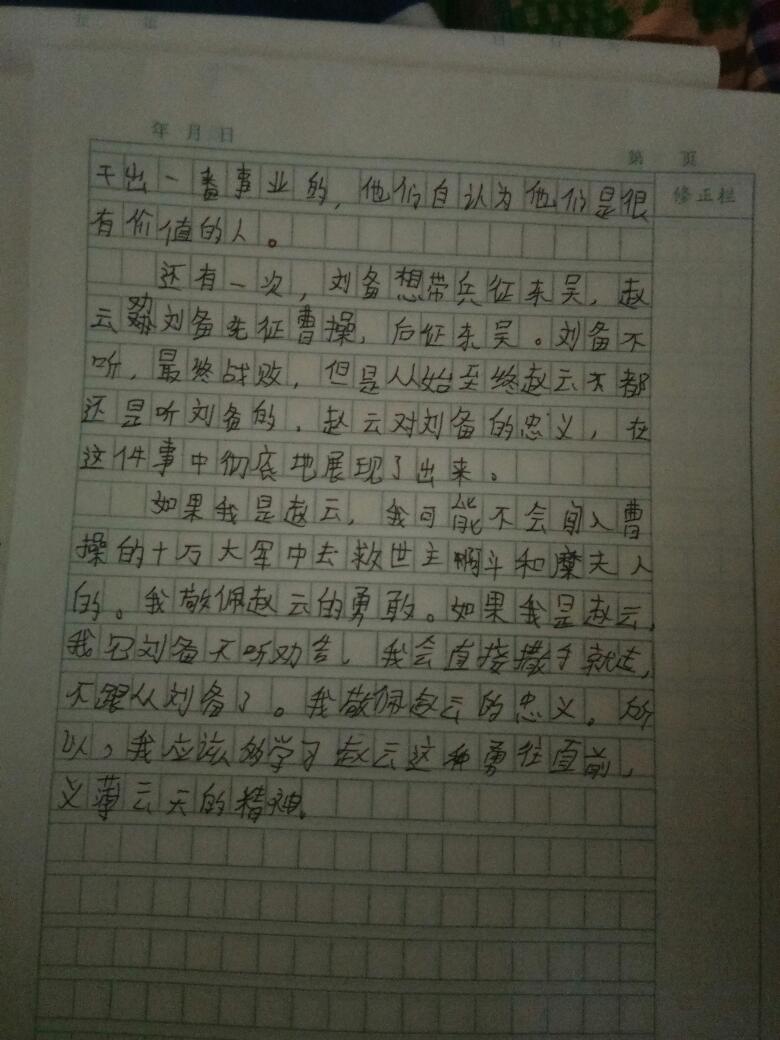 年 月 日
第 页
修正栏
干出一番事业的，他们自认为他们是很
有价值的人。
还有一次，刘备想带兵征东吴，赵
云劝刘备先征曹操，后征东吴。刘备不
听，最终战败，但是从始至终赵云不都
还是听刘备的，赵云对刘备的忠义，在
这件事中彻底地展现了出来。
如果我是赵云，我可能不会闯入曹
操的十万大军中去救世主啊斗和糜夫人
的。我敬佩赵云的勇敢。如果我是赵云，
我刘备不听劝告，我会直接撒手就走，
不跟从刘备了。我敬佩赵云的忠义。所
以，我应该学习赵云这种勇往直前，
义薄云天的精神。